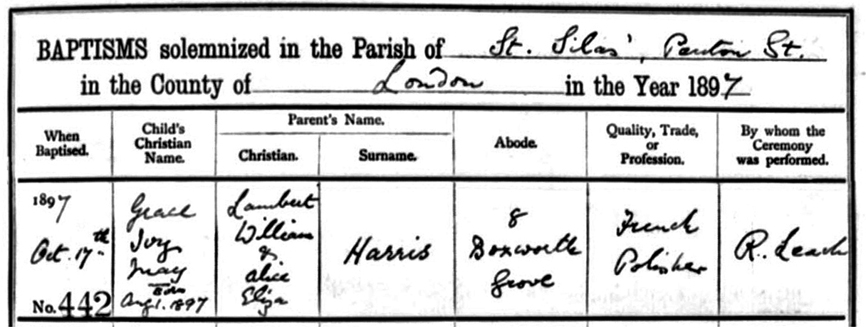 BAPTISMS solemnized in the Parish of St. Silas', Penton St.
in the County of London in the Year 1897
When Baptised.
Child's Christian Name.
Parent's Name.
Christian.
Surname.
Abode.
Quality, Trade, or Profession.
By whom the Ceremony was performed.
1897
Oct. 17th
No. 442
Grace
Ivy
May
Aug 1. 1897
Lambert
William
&
Alice
Eliza
Harris
8
Boxworth
Grove
French
Polisher
R. Leach